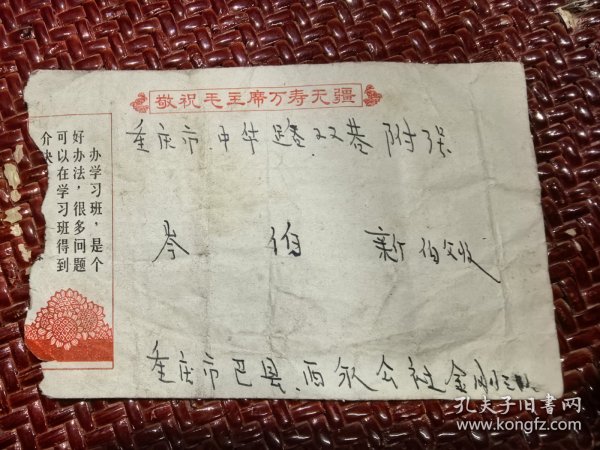 敬祝毛主席万寿无疆
重庆市中华路双巷附3号
办学习班,是个
好办法,很多问题
可以在学习班得到
岑 伯 新 伯父收
重庆市巴县西永公社金刚
孔夫子旧书网
www.kongfz.com